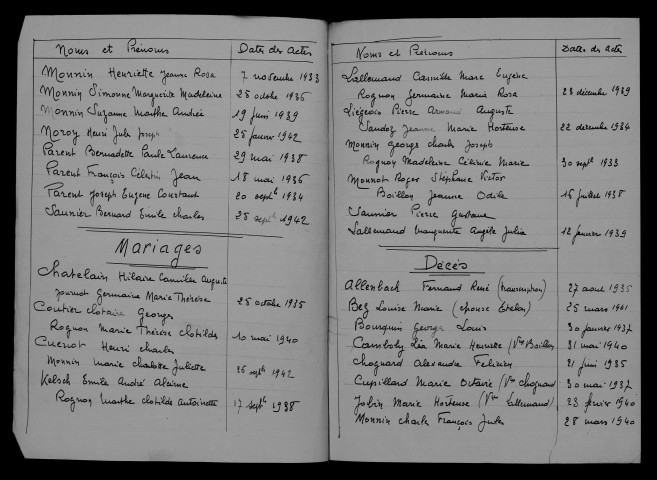 Noms et Prénoms Dates des Actes
Monnin Henriette Jeanne Rosa 7 novembre 1933
Monnin Simonne Marguerite Madeleine 25 octobre 1936
Monnin Suzanne Marthe Andrée 19 juin 1939
Noroy Henri Jules Joseph 25 janvier 1942
Parent Bernadette Paule Laurence 29 mai 1938
Parent François Célestin Jean 18 mai 1936
Parent Joseph Eugène Constant 20 septb 1934
Saunier Bernard Emile Charles 25 septb 1942
Mariages
Chatelain Hilaire Camille Auguste
Journot Germaine Marie Thérèse 25 octobre 1935
Coutier Clotaire Georges
Rognon Marie Thérèse Clotilde 10 mai 1940
Cuenot Henri Charles
Monnin Marie Charlotte Juliette 26 septb 1942
Kelsch Emile André
Rognon Marthe Clotilde Antoinette 17 septb 1938
Noms et Prénoms Dates des Actes
Lallemand Camille Marc Eugène
Rognon Germaine Maria Rosa 23 décembre 1939
Liégeois Pierre Armand Auguste
Sandoz Jeanne Marie Hortense 22 décembre 1934
Monnin Georges Charles Joseph
Rognon Madeleine Marie 30 septb 1933
Monnot Roger Stéphane Victor
Boillon Jeanne Odile 16 juillet 1938
Saunier Pierre Gustave
Lallemand Marguerite Angèle Julia 12 janvier 1939
Décès
Allenbach Fernand René (transcription) 27 août 1935
Bez Louise Marie (épouse 25 mars 1941
Bourquin Georges Louis 30 janvier 1937
Léa Marie Henriette (Vve Boillon 31 mai 1940
Chognard Alexandre Félicien 21 juin 1935
Cupillard Marie Octavie (Vve Chognard 30 mai 1937
Jobin Marie Hortense (Vve Lallemand) 23 février 1940
Monnin Charles François Jules 28 mars 1940